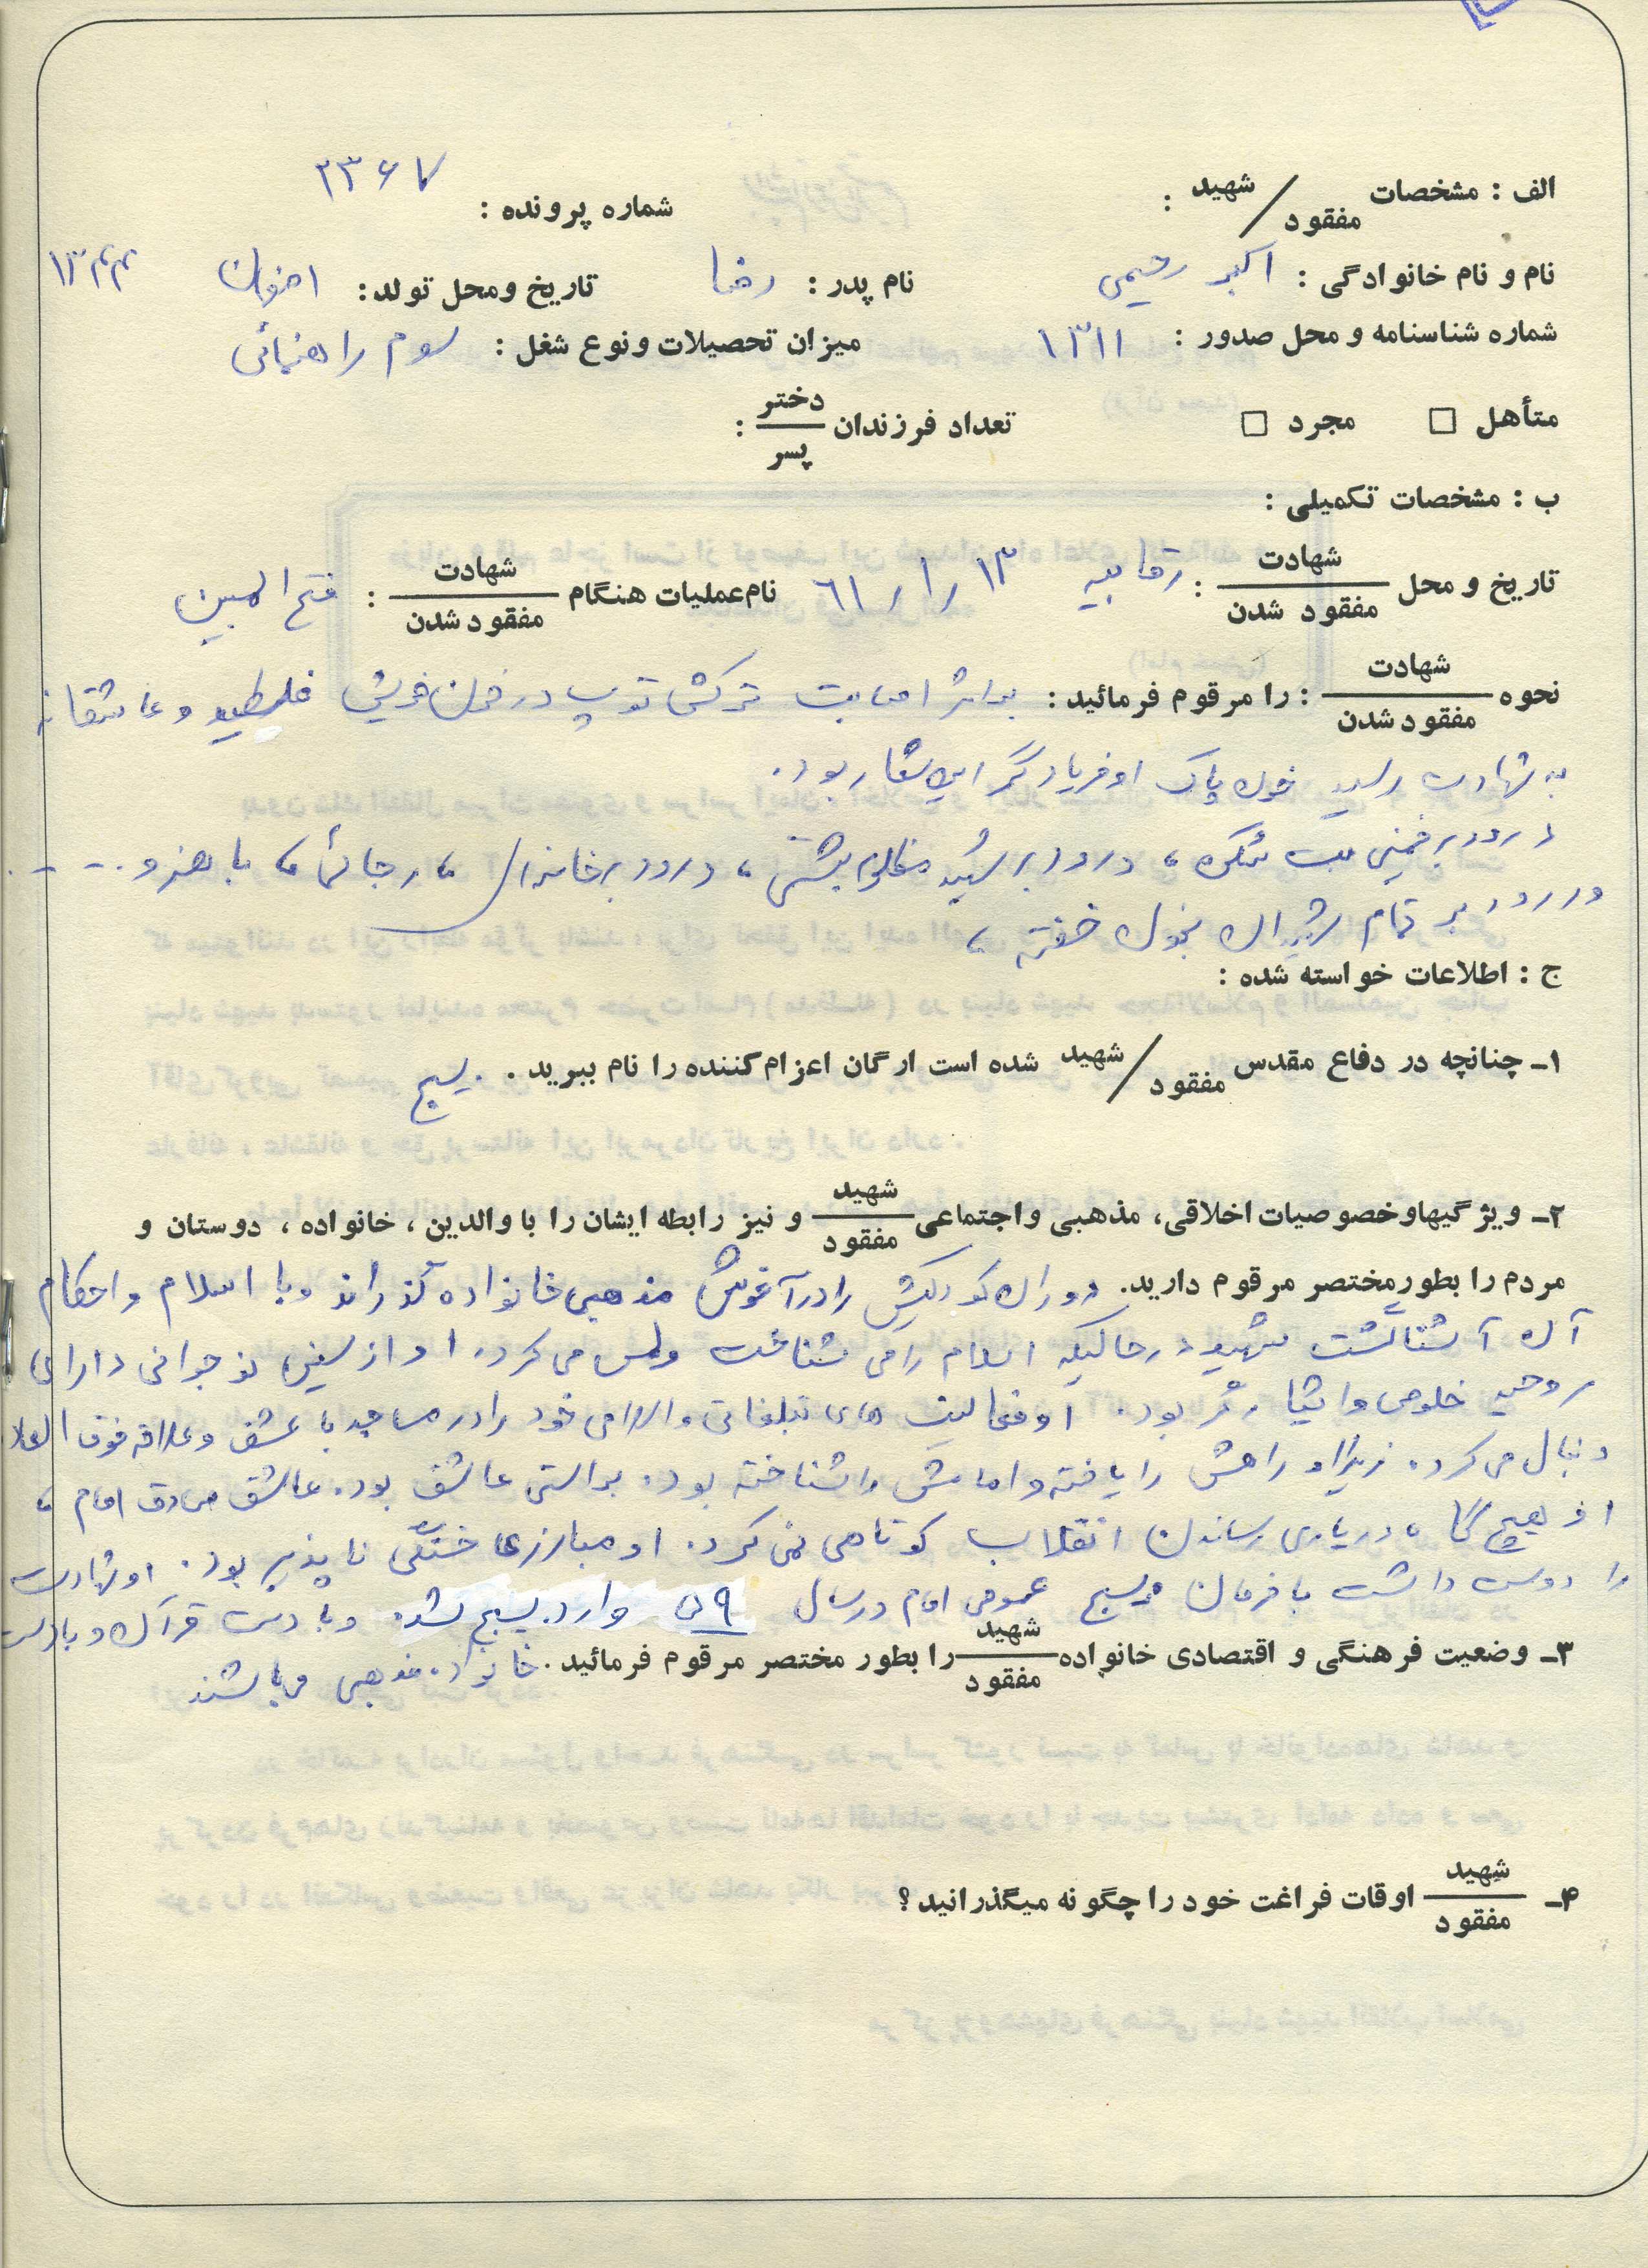 الف : مشخصات شهید / مفقود :
شماره پرونده : ۲۳۶۷
نام و نام خانوادگی : اکبر رحیمی نام پدر : رضا تاریخ ومحل تولد : ۱۳۴۴
شماره شناسنامه و محل صدور : ۱۳۱۱ میزان تحصیلات ونوع شغل : سوم راهنمائی
متأهل □ مجرد □ تعداد فرزندان دختر / پسر :
ب : مشخصات تکمیلی :
تاریخ و محل شهادت / مفقود شدن : رقابیه ۶۱/۱/۱۳ نام عملیات هنگام شهادت / مفقود شدن : فتح المبین
نحوه شهادت / مفقود شدن : را مرقوم فرمائید : براثر اصابت ترکش توپ در خون خویش غلطید و عاشقانه
به شهادت رسید خون پاک او فریادگر این شعار بود.
درود بر خمینی بت شکن ، درود بر شهید مظلوم بهشتی ، درود بر خامنه‌ای ، رجائی ، باهنر و . . . .
درود بر تمام شهیدان بخون خفته ،
ج : اطلاعات خواسته شده :
۱ـ چنانچه در دفاع مقدس شهید / مفقود شده است ارگان اعزام کننده را نام ببرید . بسیج
۲ـ ویژگیهاوخصوصیات اخلاقی، مذهبی واجتماعی شهید / مفقود و نیز رابطه ایشان را با والدین ، خانواده ، دوستان و
مردم را بطورمختصر مرقوم دارید. دوران کودکیش را در آغوش مذهبی خانواده گذراند وبا اسلام واحکام
آن آشنا گشت شهید در حالیکه اسلام را می شناخت ولمس می کرد. او از سنین نوجوانی دارای
روحیه خلوص وایثارگر بود. او فعالیت های تبلیغاتی واسلامی خود را در مساجد با عشق وعلاقه فوق العاده
دنبال می کرد. زیرا او راهش را یافته و امامش را شناخته بود. براستی عاشق بود. عاشق صادق امام ،
او هیچ گاه در یاری رساندن انقلاب کوتاهی نمی کرد. او مبارزی خستگی ناپذیر بود. او شهادت
را دوست داشت با فرمان بسیج عمومی امام در سال ۵۹ وارد بسیج شد. وبا دست قرآن و با دست
۳ـ وضعیت فرهنگی و اقتصادی خانواده شهید / مفقود را بطور مختصر مرقوم فرمائید . خانواده مذهبی میباشند
۴ـ شهید / مفقود اوقات فراغت خود را چگونه میگذرانید ؟